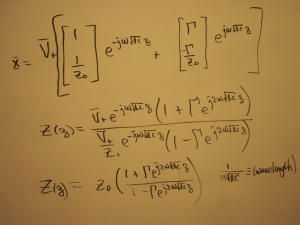 x̄ = V̄₊ [ [1; 1/z₀] e^{-jω√lc z} + [Γ; -Γ/z₀] e^{jω√lc z} ]
Z(z) = V̄₊ e^{-jω√lc z} (1 + Γ e^{j2ω√lc z}) / (V̄₊/Z₀ e^{-jω√lc z} (1 - Γ e^{j2ω√lc z}))
Z(z) = Z₀ ( (1 + Γe^{j2ω√lc z}) / (1 - Γe^{j2ω√lc z}) ) 1/(ω√lc) ≡ (wavelength)